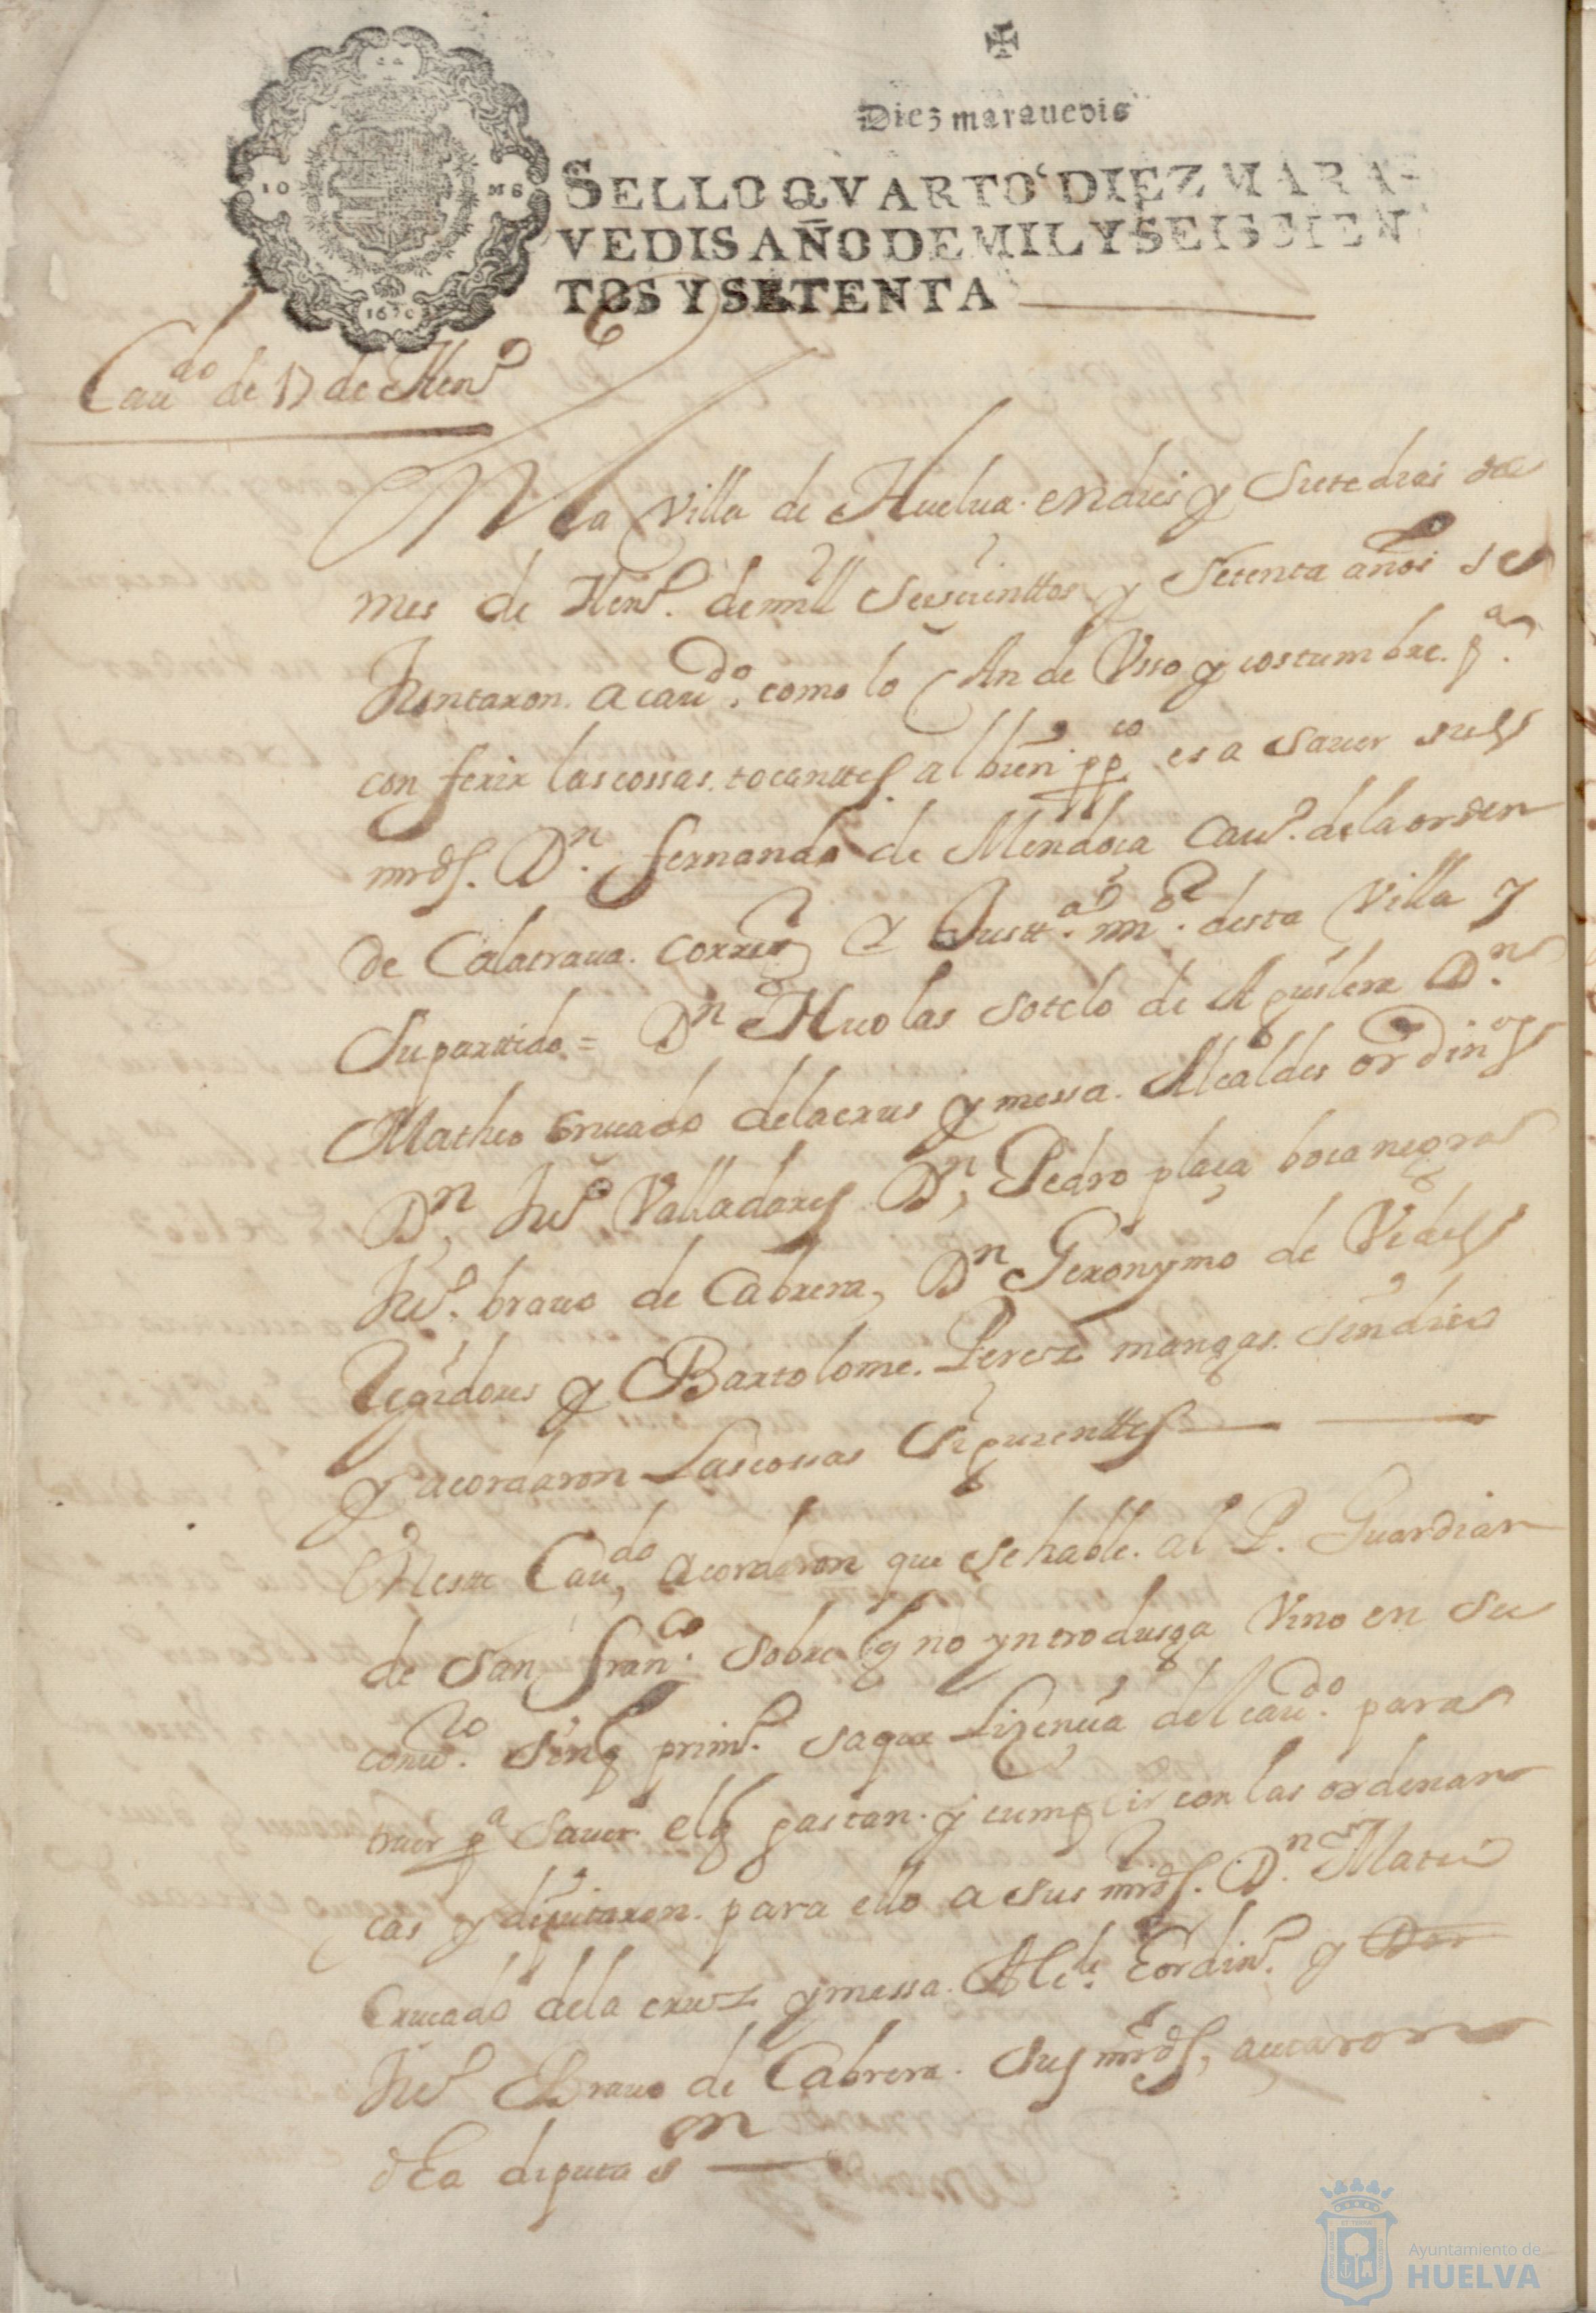 Diez marauedis
SELLO QVARTO, DIEZ MARA-
VEDIS, AÑO DE MIL Y SEISCIEN
TOS Y SETENTA
10 MS
1670
Cau.do de 17 de Hen.o
EN la Villa de Huelua. en dies y Siete dias del
mes de Hen.o de mill Seiscienttos y Setenta años se
Juntaron. a cau.do como lo An de Vsso y costumbre. p.a
conferir las cossas. tocanttes al bien pp.co es a sauer sus
mrds. D.n fernando de Mendoça Cau.o de la orden
de Calatraua. Correg.r y Justt.a m.r desta Villa y
Su parttido = D.n Nicolas Sotelo de Aguilera D.n
Matheo Crucado de la crus y messa. Alcaldes ordin.os
D.n Ju.o Valladares D.n Pedro plaça bocanegra
Ju.o brauo de Cabrera, D.n Geronymo de Vides
Regidores y Bartolome. Perez mangas. sindico
y acordaron Las cossas Siguienttes
En este Cau.do acordaron que se hable. al P. Guardian
de San fran.co Sobre q no yntrodusga Vino en su
conu.to sin q prim.o saque Lizencia del cau.do para
traer p.a Sauer el q gastan. y cumplir con las ordenan
cas y diputaron. para ello a sus mrds. D.n Mateo
Crucado de la cruz y messa. Alc.de hordin.o y
Ju.o Brauo de Cabrera. Sus mrds, acetaron
dha diputas.on
Ayuntamiento de
HUELVA